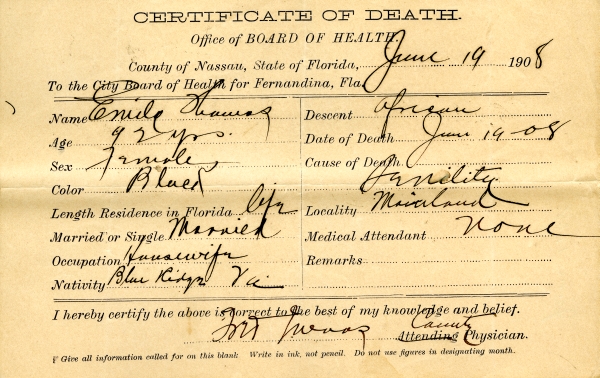 CERTIFICATE OF DEATH.
Office of BOARD OF HEALTH.
County of Nassau, State of Florida, June 19 1908
To the City Board of Health for Fernandina, Fla.
Name Emile Thomas
Age 92 yrs.
Sex Female
Color Black
Length Residence in Florida life
Married or Single Married
Occupation Housewife
Nativity Blue Ridge Va
Descent African
Date of Death June 19-08
Cause of Death Senility
Locality Mainland
Medical Attendant None
Remarks
I hereby certify the above is correct to the best of my knowledge and belief.
County
Attending Physician.
Give all information called for on this blank Write in ink, not pencil. Do not use figures in designating month.